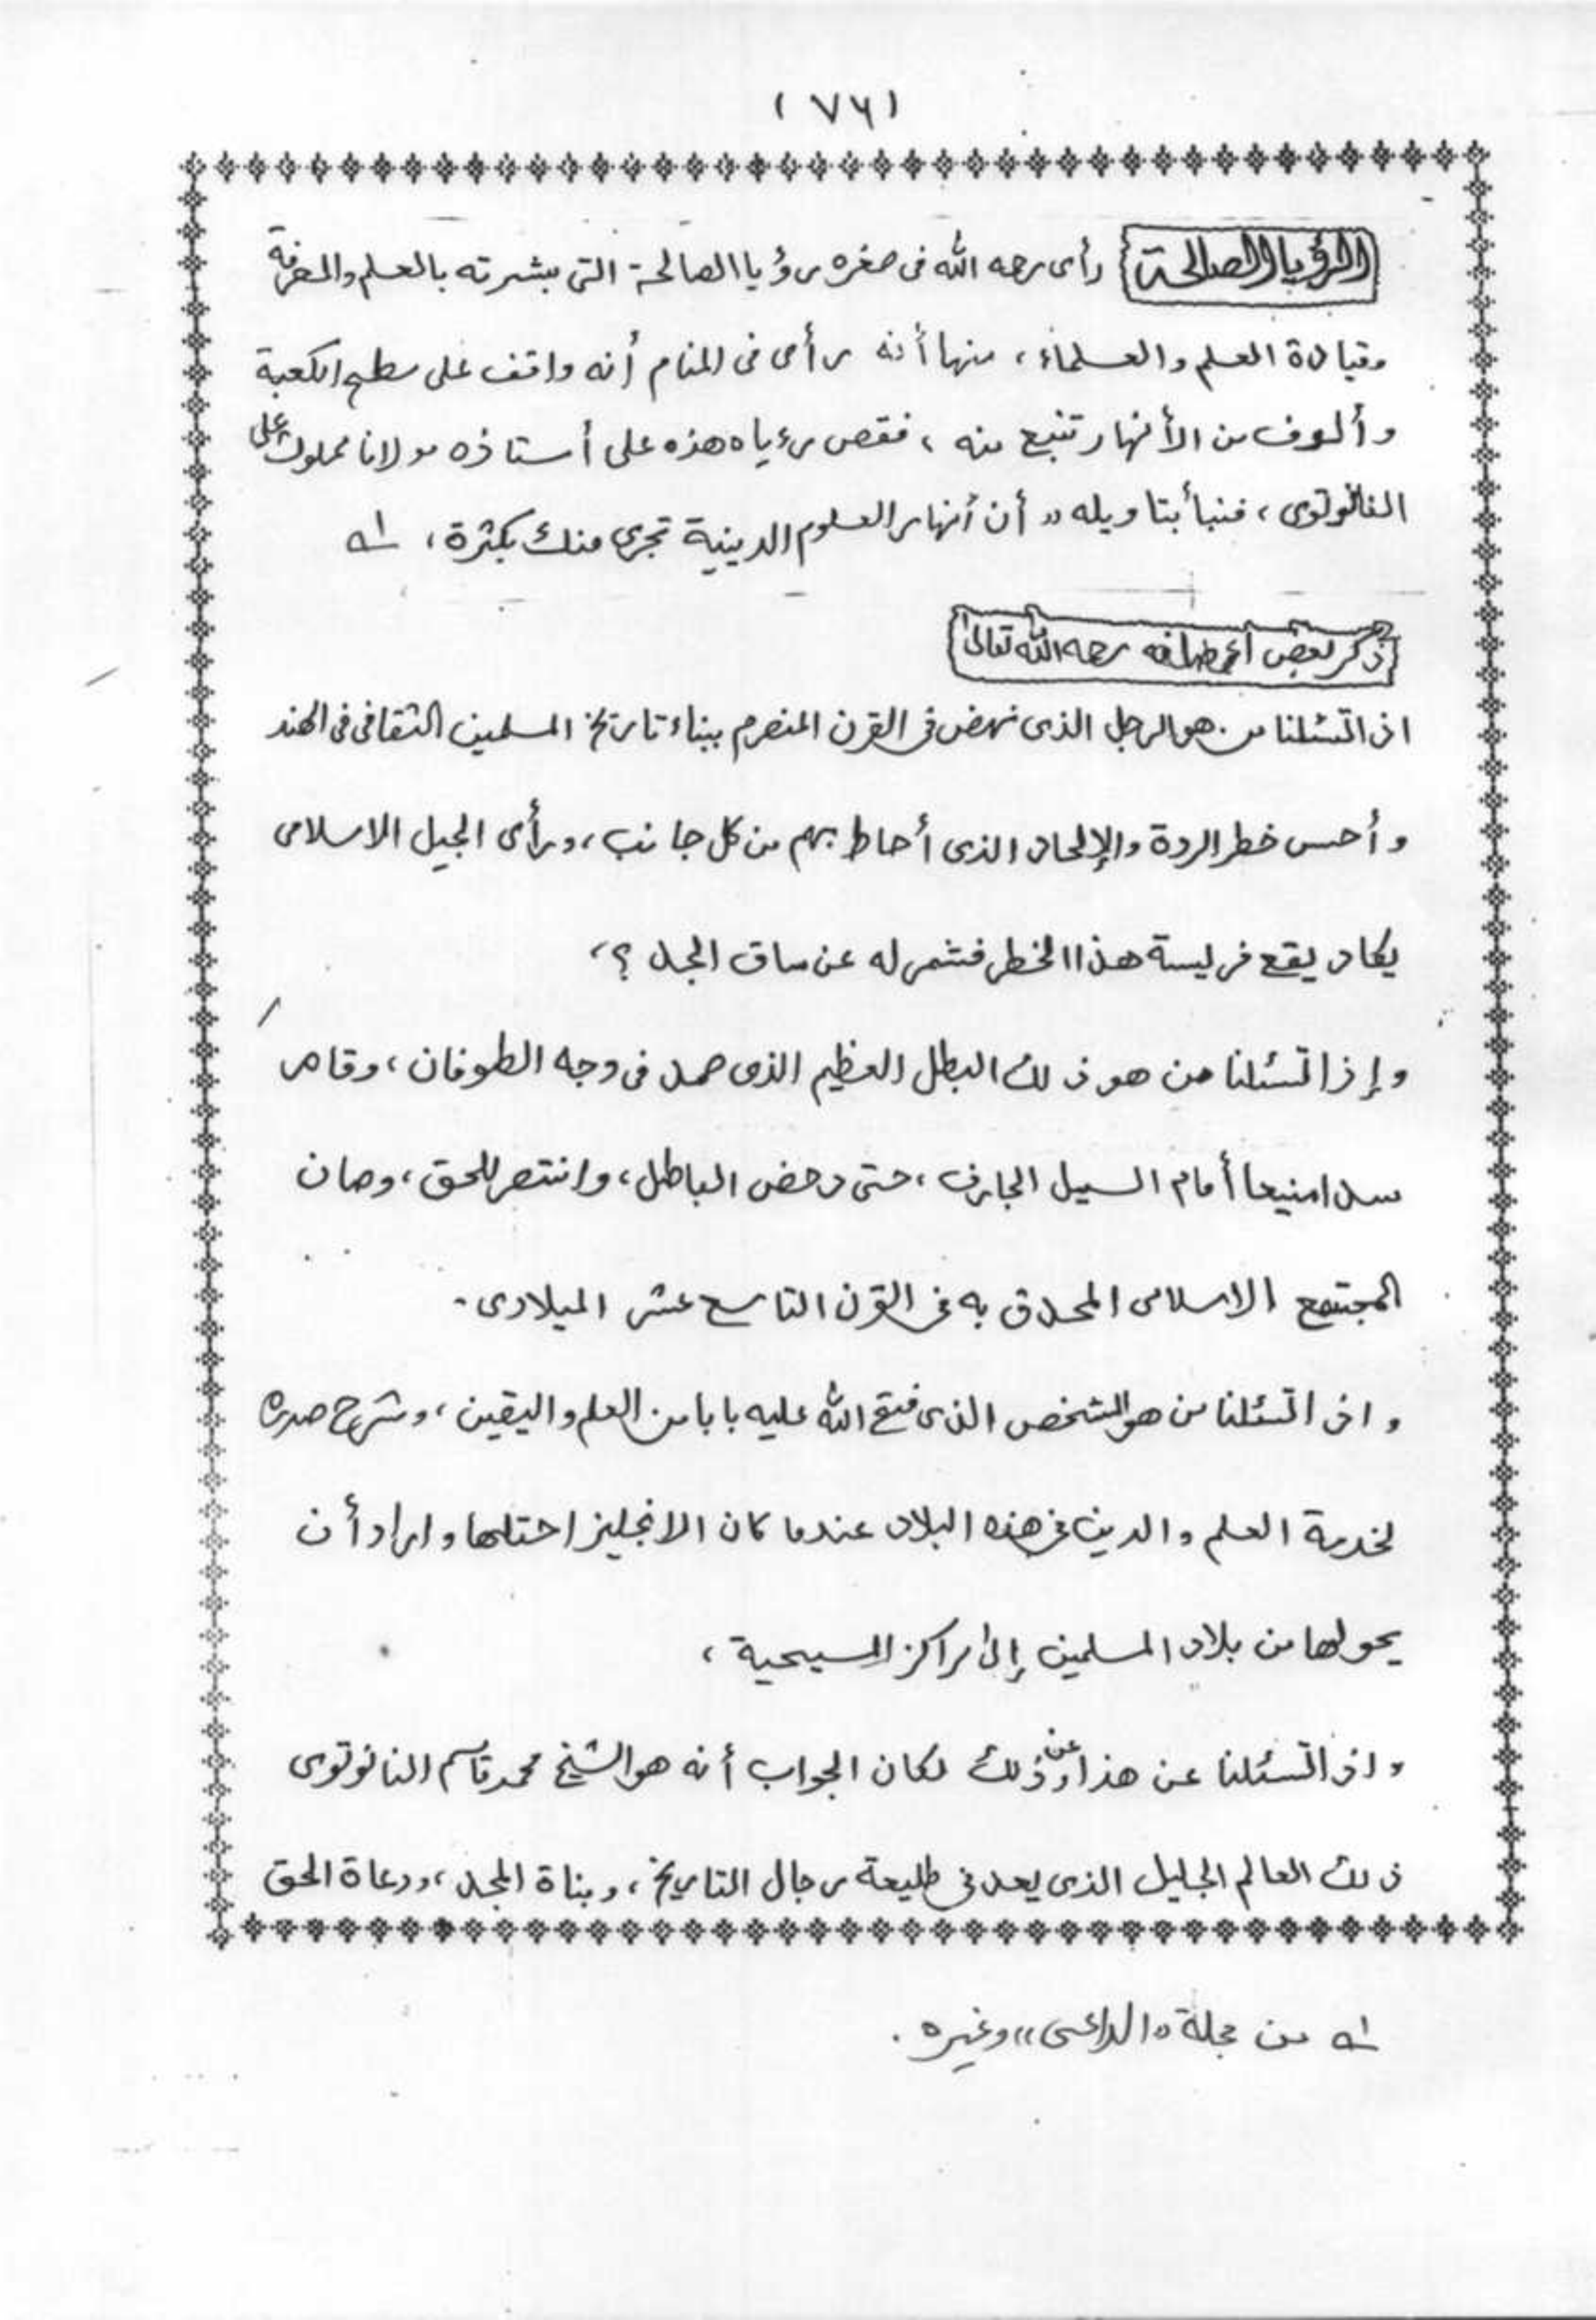 (٧٦)
الرؤيا الصالحة رأى رحمه الله فى صغره رؤيا الصالحة التى بشرته بالعلم والمعرفة
وقيادة العلم والعلماء، منها أنه رأى فى المنام أنه واقف على سطح الكعبة
وألوف من الأنهار تنبع منه ، فقص رءياه هذه على أستاذه مولانا مملوك على
النانوتوى، فنبأ بتاويله ” أن أنهار العلوم الدينية تجرى منك بكثرة، لـه
ذكر بعض أعماله رحمه الله تعالىٰ
اذا تسئلنا من هو الرجل الذى نهض فى القرن المنصرم ببناء تاريخ المسلمين الثقافى فى الهند
وأحس خطر الردة والإلحاد الذى أحاط بهم من كل جانب، ورأى الجيل الاسلامى
يكاد يقع فريسة هذا الخطر فشمر له عن ساق الجد ؟،
وإذا تسئلنا من هو ذلك البطل العظيم الذى صمد فى وجه الطوفان، وقام
سدا منيعا أمام السيل الجارف ، حتى دحض الباطل، وانتصر للحق، وصان
المجتمع الاسلامى المحدق به فى القرن التاسع عشر الميلادى۔
واذا تسئلنا من هو الشخص الذى فتح الله عليه بابا من العلم واليقين، وشرح صدره
لخدمة العلم والدين فى هذه البلاد عندما كان الانجليز احتلها وارادأن
يحولها من بلاد المسلمين إلىٰ مراكز المسيحية ،
واذا تسئلنا عن هذا وعن ذلك لكان الجواب أنه هو الشيخ محمد قاسم النانوتوى
ذلك العالم الجليل الذى يعد فى طليعة رجال التاريخ، وبناة المجد، ودعاة الحق
لـه من مجلة ”الداعى“ وغيره .